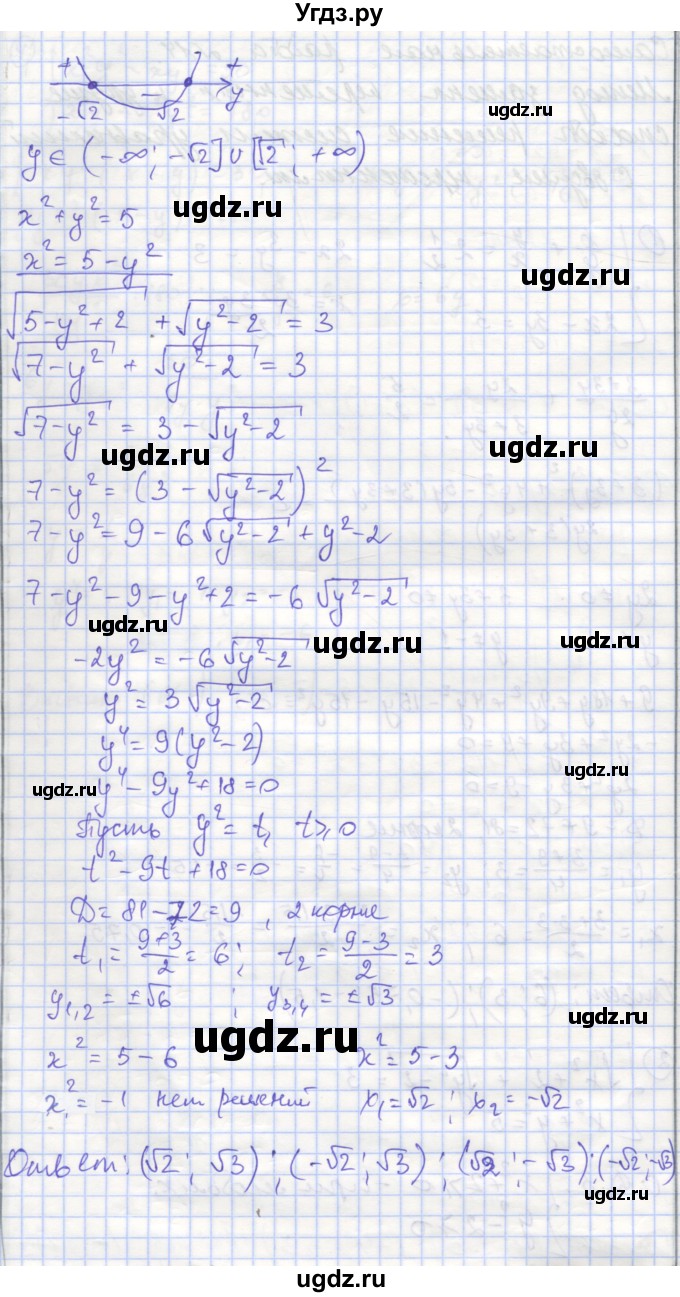 Угдз.ру
+ − + y
−√2 √2
ugdz.ru
y ∈ (−∞; −√2] ∪ [√2; +∞)
x² + y² = 5
ugdz.ru
x² = 5 − y²
ugdz.ru
√(5−y²+2) + √(y²−2) = 3
√(7−y²) + √(y²−2) = 3
√(7−y²) = 3 − √(y²−2)
ugdz.ru
ugdz.ru
7−y² = (3 − √(y²−2))²
7−y² = 9 − 6√(y²−2) + y²−2
7−y²−9−y²+2 = −6√(y²−2)
ugdz.ru
ugdz.ru
ugdz.ru
−2y² = −6√(y²−2)
y² = 3√(y²−2)
y⁴ = 9(y²−2)
ugdz.ru
ugdz.ru
y⁴ − 9y² + 18 = 0
Пусть y² = t, t ≥ 0
t² − 9t + 18 = 0
D = 81−72 = 9, 2 корня
t₁ = (9+3)/2 = 6; t₂ = (9−3)/2 = 3
y₁,₂ = ±√6 ; y₃,₄ = ±√3
ugdz.ru
ugdz.ru
x² = 5−6 x² = 5−3
x² = −1 нет решений x₁ = √2; x₂ = −√2
Ответ: (√2; √3); (−√2; √3); (√2; −√3); (−√2; −√3)
ugdz.ru
ugdz.ru